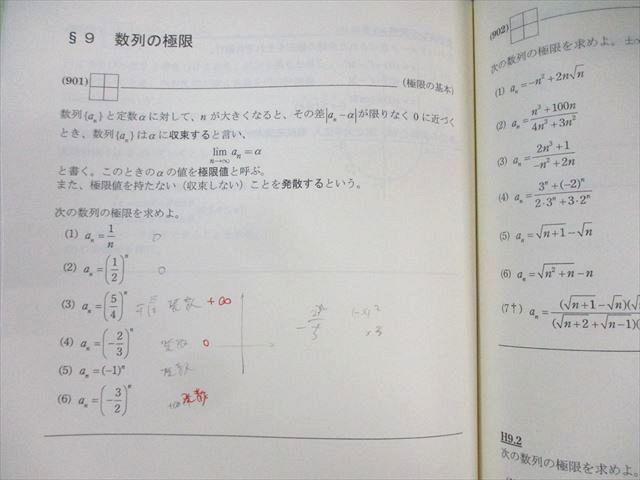 §9 数列の極限
(901) (極限の基本)
数列{aₙ}と定数αに対して、nが大きくなると、その差|aₙ−α|が限りなく0に近づく
とき、数列{aₙ}はαに収束すると言い、
lim aₙ=α
n→∞
と書く。このときのαの値を極限値と呼ぶ。
また、極限値を持たない（収束しない）ことを発散するという。
次の数列の極限を求めよ。
(1) aₙ=1/n 0
(2) aₙ=(1/2)ⁿ 0
(3) aₙ=(5/4)ⁿ 発散 +∞
(4) aₙ=(−2/3)ⁿ 発散 0
(5) aₙ=(−1)ⁿ 発散
(6) aₙ=(−3/2)ⁿ +∞ 発散
(902)
次の数列の極限を求めよ。
(1) aₙ=−n²+2n√n
(2) aₙ=(n³+100n)/(4n³+3n²)
(3) aₙ=(2n³+1)/(−n²+2n)
(4) aₙ=(3ⁿ+(−2)ⁿ)/(2・3ⁿ+3・2ⁿ)
(5) aₙ=√(n+1)−√n
(6) aₙ=√(n²+n)−n
(7†) aₙ=(√(n+1)−√n)(√/(√(n+2)+√(n−1))(
H9.2
次の数列の極限を求めよ。